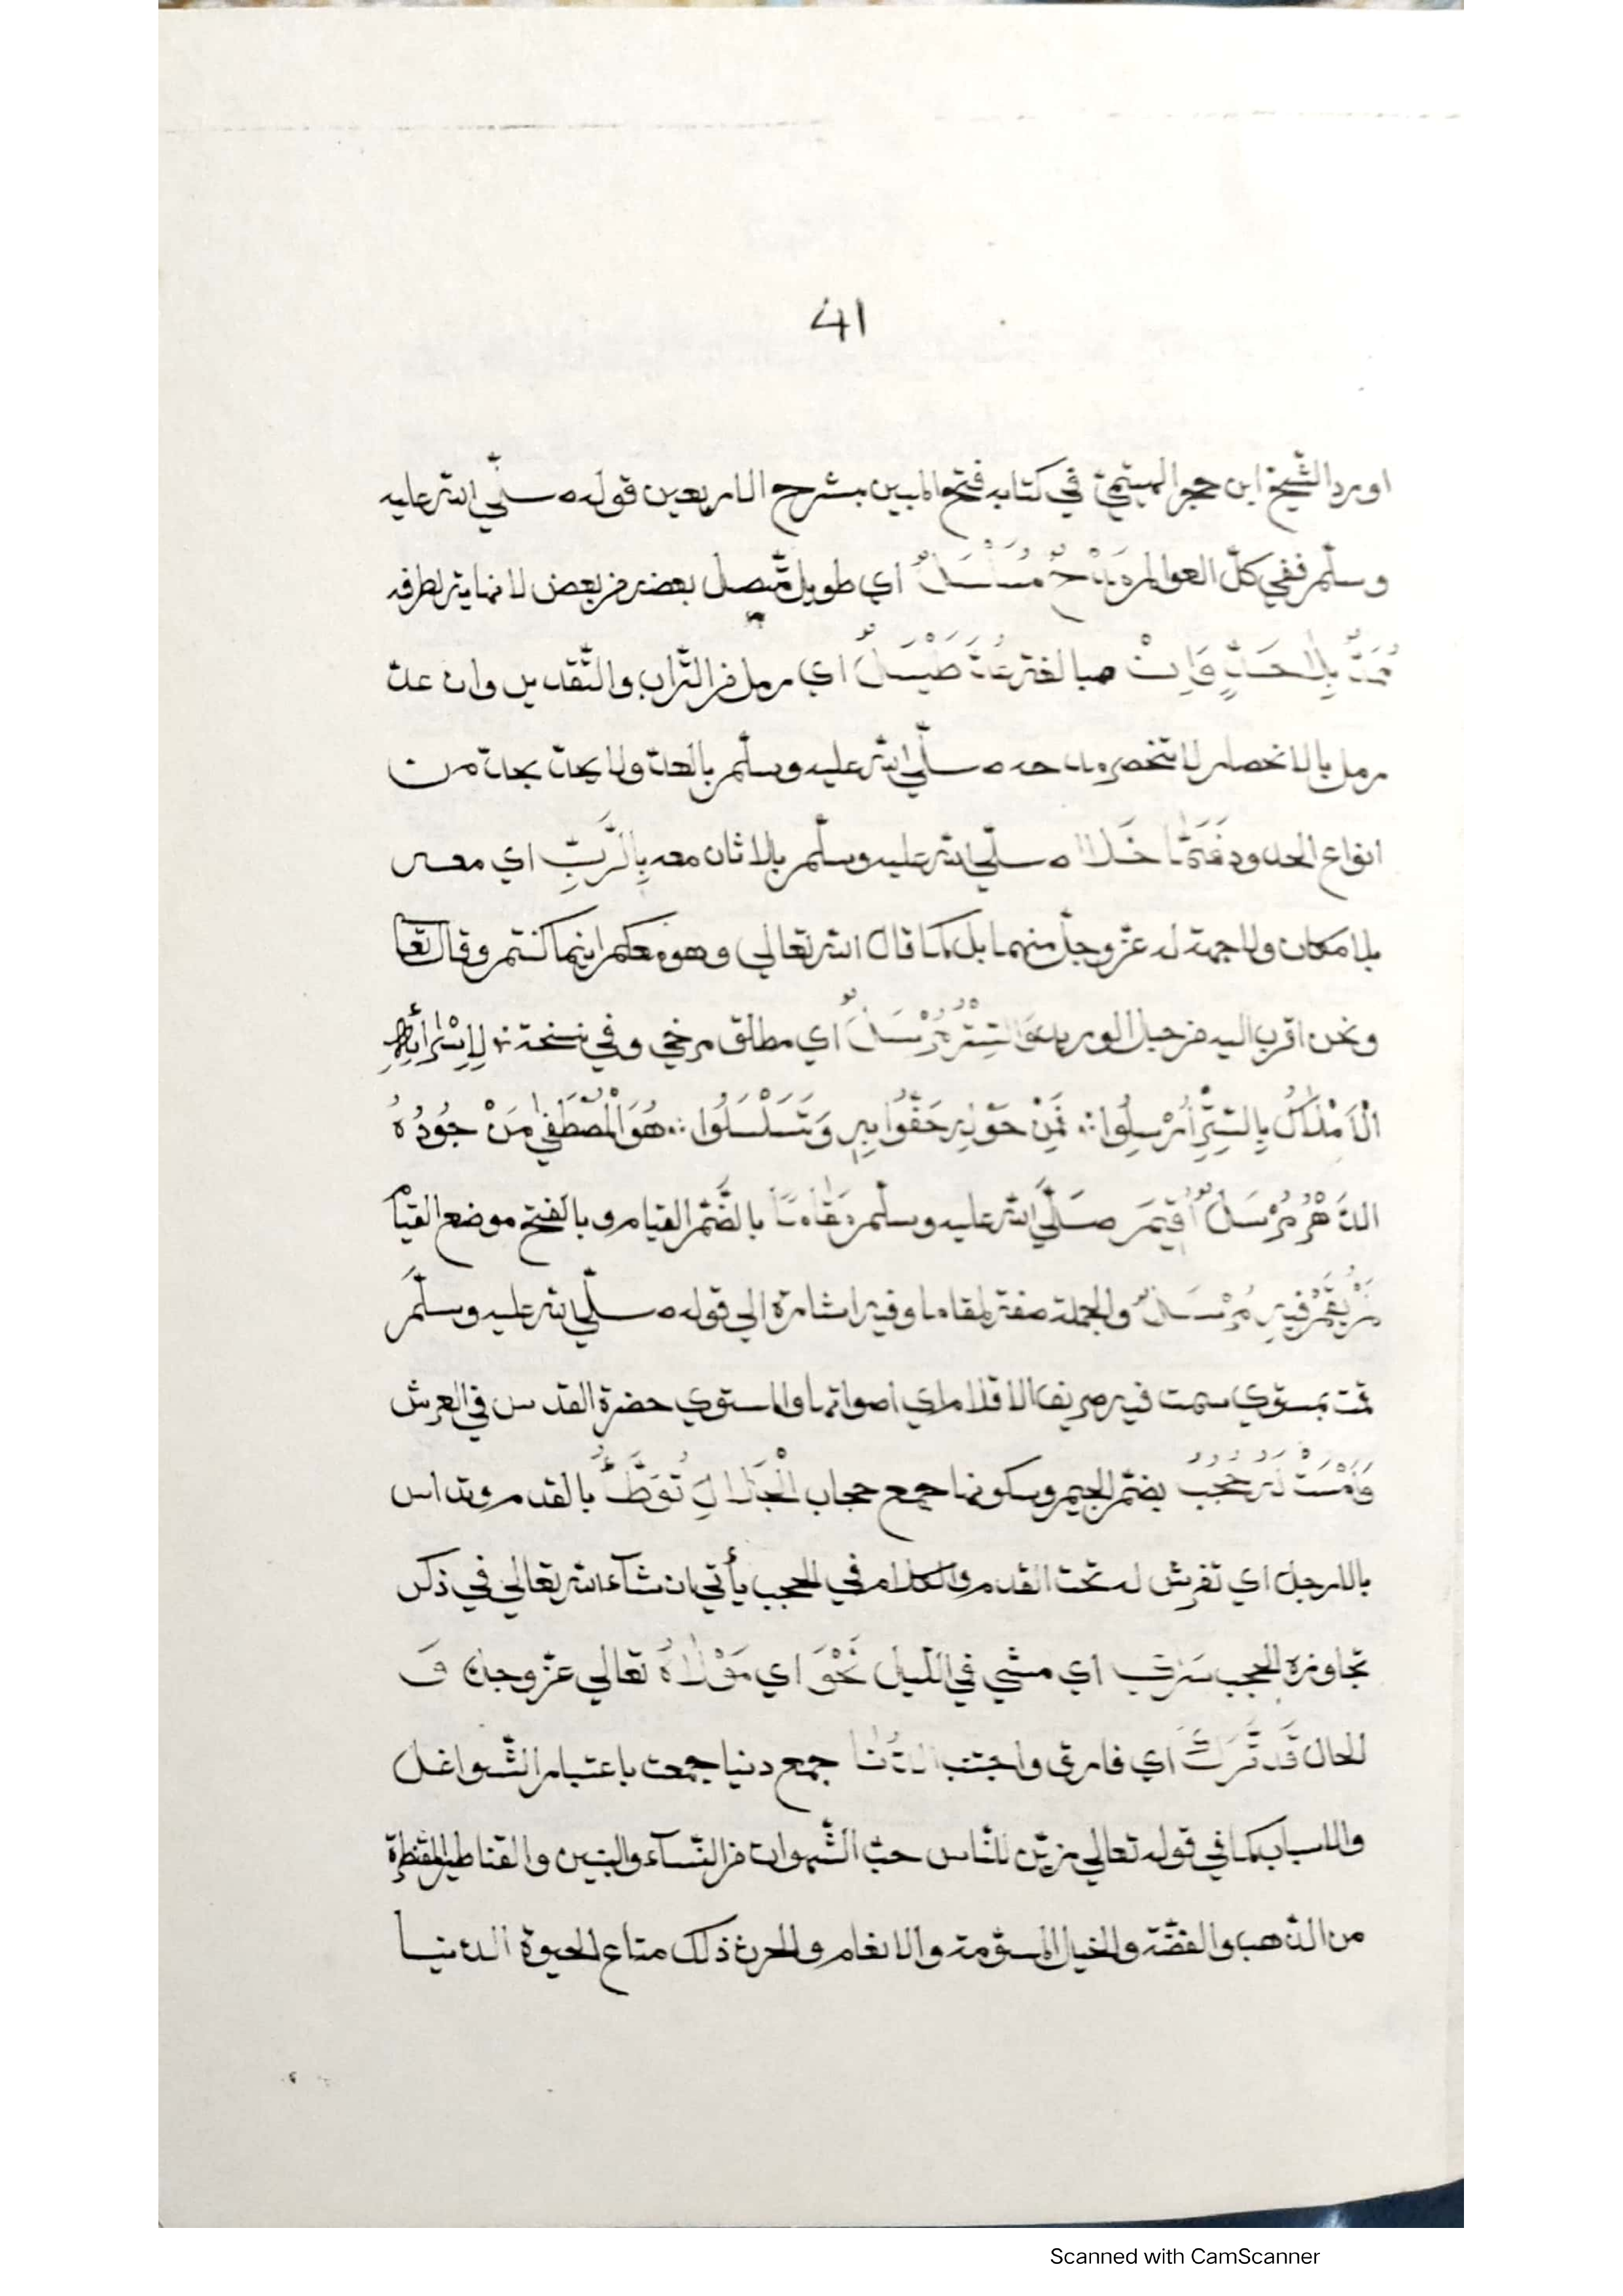 41
اورد الشّيخ ابن حجر الهيتميّ في كتابه فتح المبين بشرح الاربعين قوله صلّي الله عليه
وسلّم ففي كلّ العوالم مَدْحُهُ مُسَلْسَلٌ اي طويل متّصل بعضه من بعض لا نهاية لطرفه
يُمَدُّ بِلَا حَدٍّ وَاِنْ عُدَّ طَيْسَلٌ اي رمل من التّراب والتّقدير وان عدّ
رمل بالانحصار لا ينحصر مدحه صلّي الله عليه وسلّم بالعدّ ولا يحدّ بحدّ من
انواع الحدود خَلَا صلّي الله عليه وسلّم بلا ثان معه بِالرَّبِّ اي معه
بلا مكان ولا جهة له عزّ وجلّ منهما بل كما قال الله تعالي وهو معكم اينما كنتم وقال تعا
ونحن اقرب اليه من حبل الوريد وَالسِّتْرُ مُرْسَلٌ اي مطلق مرخي وفي نسخة لِإِسْرَائِهِ
الْأَمْلَاكُ بِالسِّتْرِ اُرْسِلُوا ∴ فَمِنْ حَوْلِهِ حَفُّوا بِهِ وَتَسَلْسَلُوا ∴ هُوَ الْمُصْطَفٰي مَنْ جُودُهُ
الدَّهْرَ مُرْسَلٌ اُقِيمَ صَلَّي الله عليه وسلّم مَقَامًا بالضّمّ القيام وبالفتح موضع القيام
لَمْ يُقَمْ فِيهِ مُرْسَلٌ والجملة صفة لمقاما وفيه اشارة الي قوله صلّي الله عليه وسلّم
ثمّت بمستوي سمعت فيه صريف الاقلام اي اصواتها والمستوي حضرة القدس في العرش
وَأَمْسَتْ لَهُ حُجْبُ بضمّ الجيم وسكونها جمع حجاب الْجَلَالِ تُوَطَّأُ بالقدم وتداس
بالارجل اي تفرش له تحت القدم والكلام في الحجب يأتي ان شآء الله تعالي في ذكر
تجاوزه الحجب سَرٰي اي مشي في اللّيل نَحْوَ اي مَوْلَاهُ تعالي عزّ وجلّ وَ
الحال قَد تَّرَكَ اي فارق واجتنب الدُّنَا جمع دنيا جمعت باعتبار الشّواغل
والاسباب كما في قوله تعالي زيّن للنّاس حبّ الشّهوات من النّسآء والبنين والقناطير المقنطرة
من الذّهب والفضّة والخيل المسوّمة والانعام والحرث ذلك متاع الحيوة الدنيا
Scanned with CamScanner